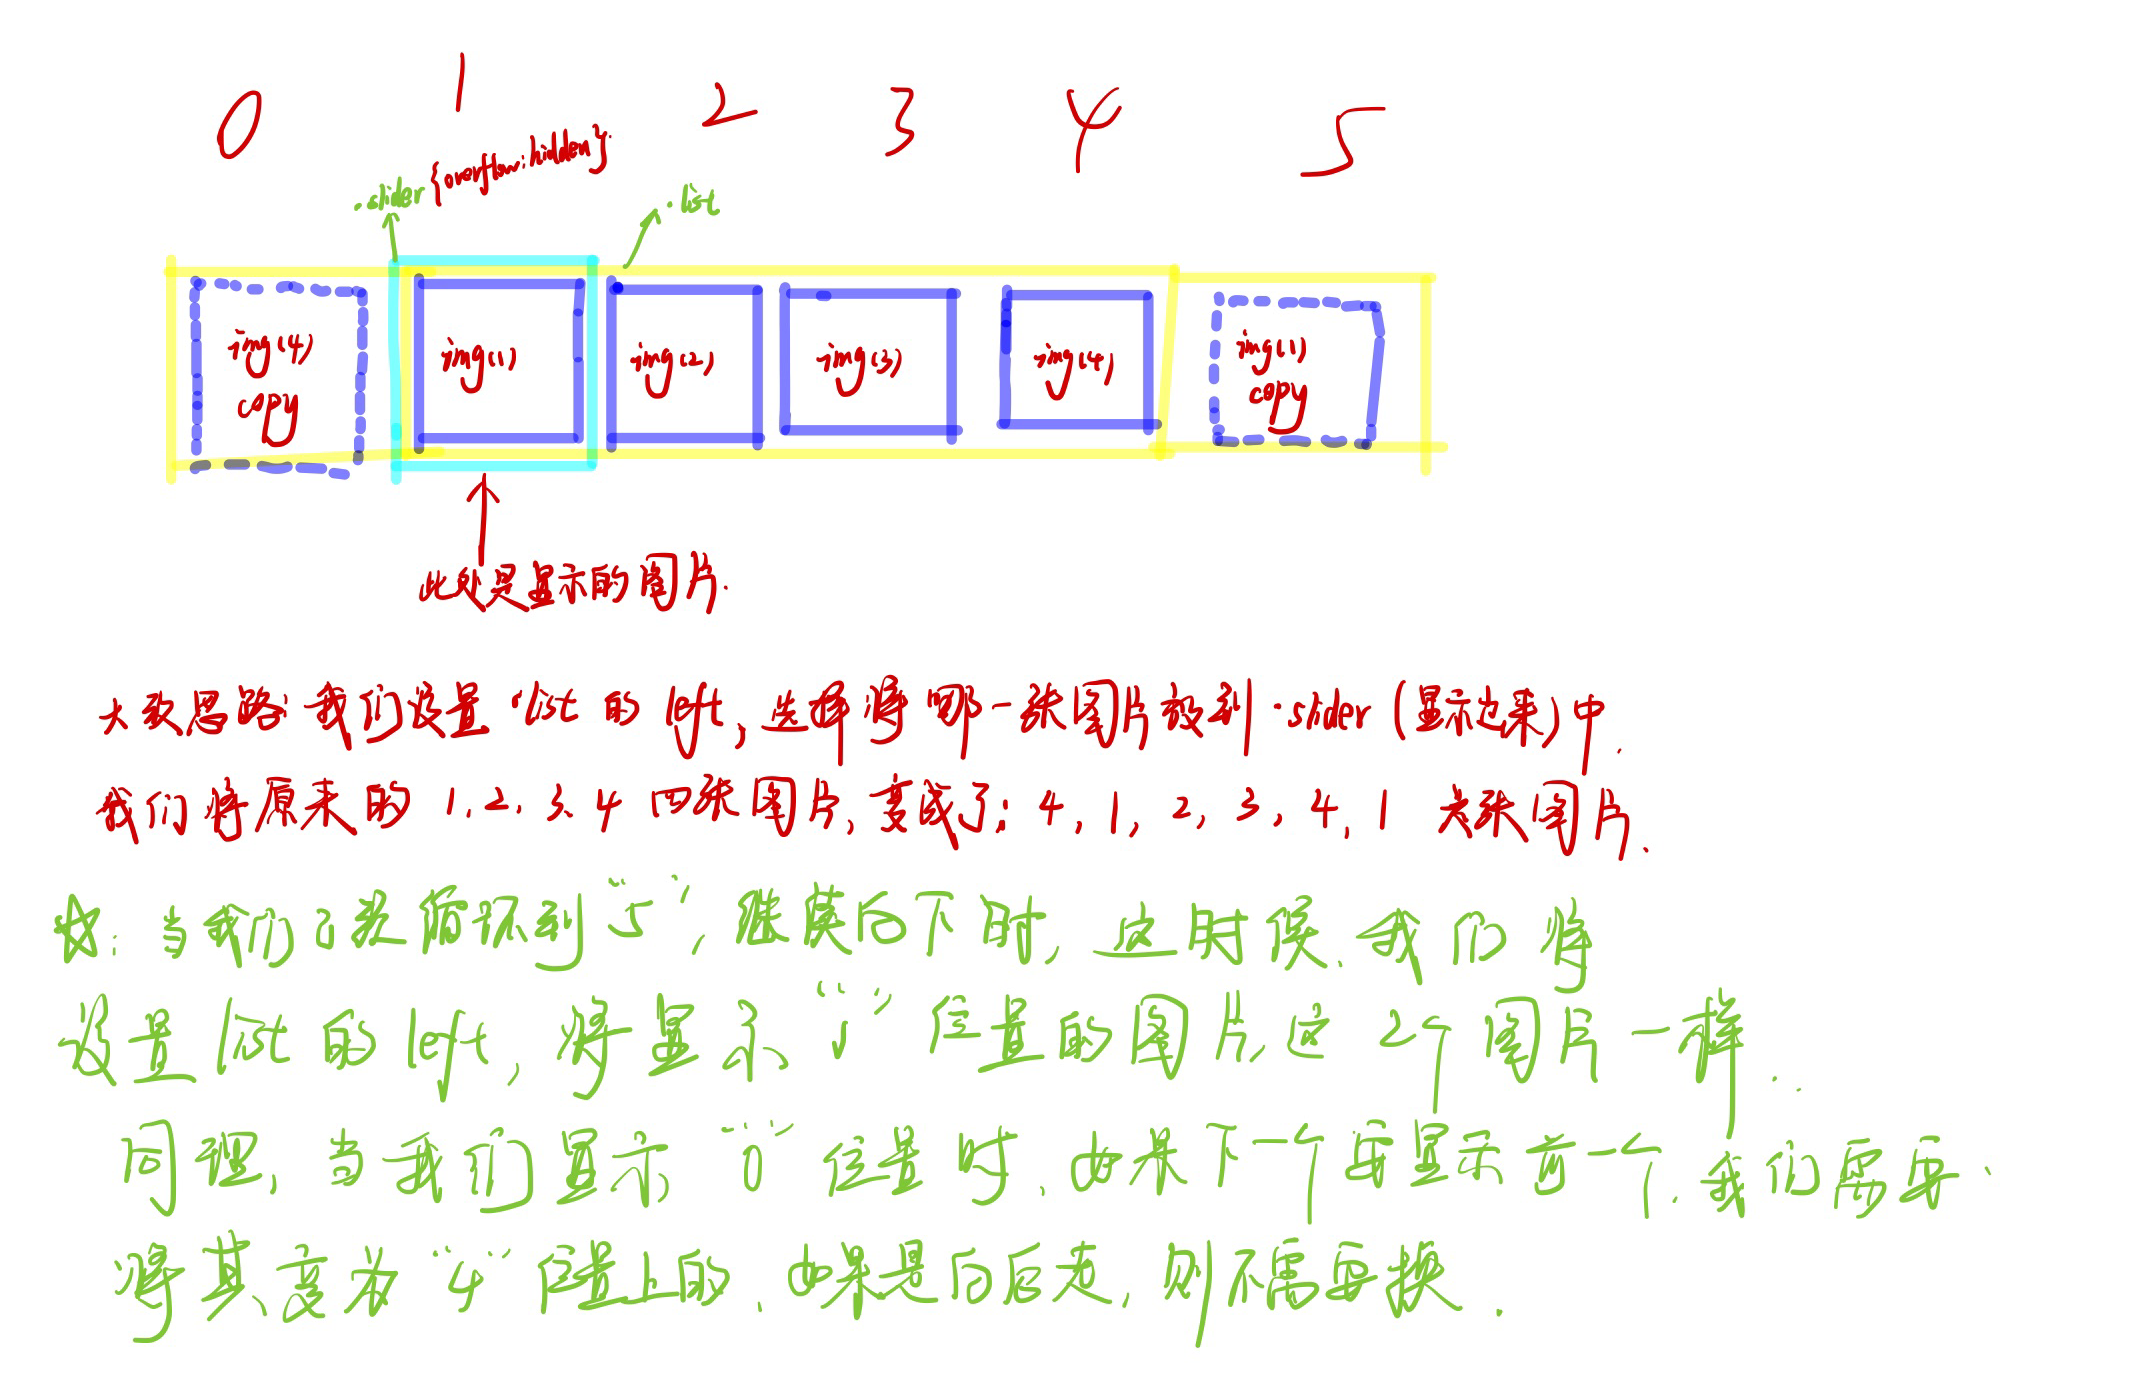 0 1 2 3 4 5
.slider {overflow:hidden}
.list
img(4) copy
img(1)
img(2)
img(3)
img(4)
img(1) copy
此处是显示的图片.
大致思路:我们设置.list 的 left, 选择将哪一张图片放到.slider(显示出来)中.
我们将原来的 1, 2, 3, 4 四张图片, 变成了: 4, 1, 2, 3, 4, 1 六张图片.
☆: 当我们已经循环到"5", 继续向下时, 这时候, 我们将
设置 list 的 left, 将显示"1"位置的图片, 这 2个 图片一样..
同理, 当我们显示"0"位置时, 如果下一个要显示前一个, 我们需要
将其变为"4"位置上的, 如果是向后走, 则不需要换.